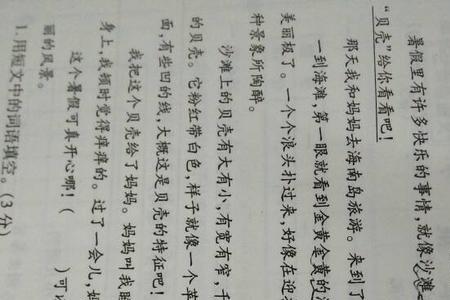 暑假里有许多快乐的事情，就像沙滩
“贝壳”给你看看吧！
那天我和妈妈去海南岛旅游。来到了
一到海滩，第一眼就看到金黄金黄的
美丽极了。一个个浪头扑过来，好像在迎
种景象所陶醉。
沙滩上的贝壳有大有小，有宽有窄，千
的贝壳。它粉红带白色，样子就像一个苹
面，有些凹的线，大概这是贝壳的特征吧！
我把这个贝壳给了妈妈。妈妈叫我
身上，我顿时觉得痒痒的。过了一会儿，妈
这个暑假可真开心哪！（ ）可
丽的风景。
1.用短文中的词语填空。（3分）